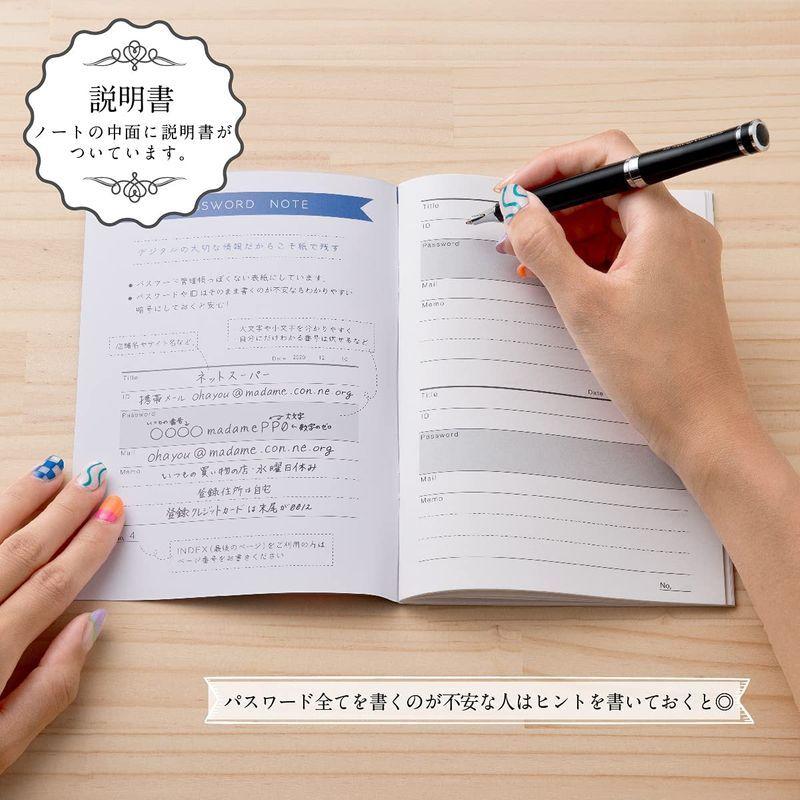 説明書
ノートの中面に説明書が
ついています。
SSWORD NOTE
デジタルの大切な情報だからこそ紙で残す
●パスワード管理帳っぽくない表紙にしています。
●パスワードやIDはそのまま書くのが不安ならわかりやすい
暗号にしておくと安心!
大文字や小文字を分かりやすく
自分にだけわかる番号は伏せるなど
店舗名やサイト名など、
Date 2020 12 10
Title ネットスーパー
ID 携帯メール ohayou@madame.con.ne.org
Password
いつもの番号 大文字
○○○○madamePP0 ←数字のゼロ
Mail ohayou@madame.con.ne.org
Memo いつもの買い物の店・水曜日休み
登録住所は自宅
登録クレジットカードは末尾が0012
4
INDEX(最後のページ)をご利用の方は
ページ番号をお書きください
Title
ID
Password
Mail
Memo
Title Date
ID
Password
Mail
Memo
No.
パスワード全てを書くのが不安な人はヒントを書いておくと◎